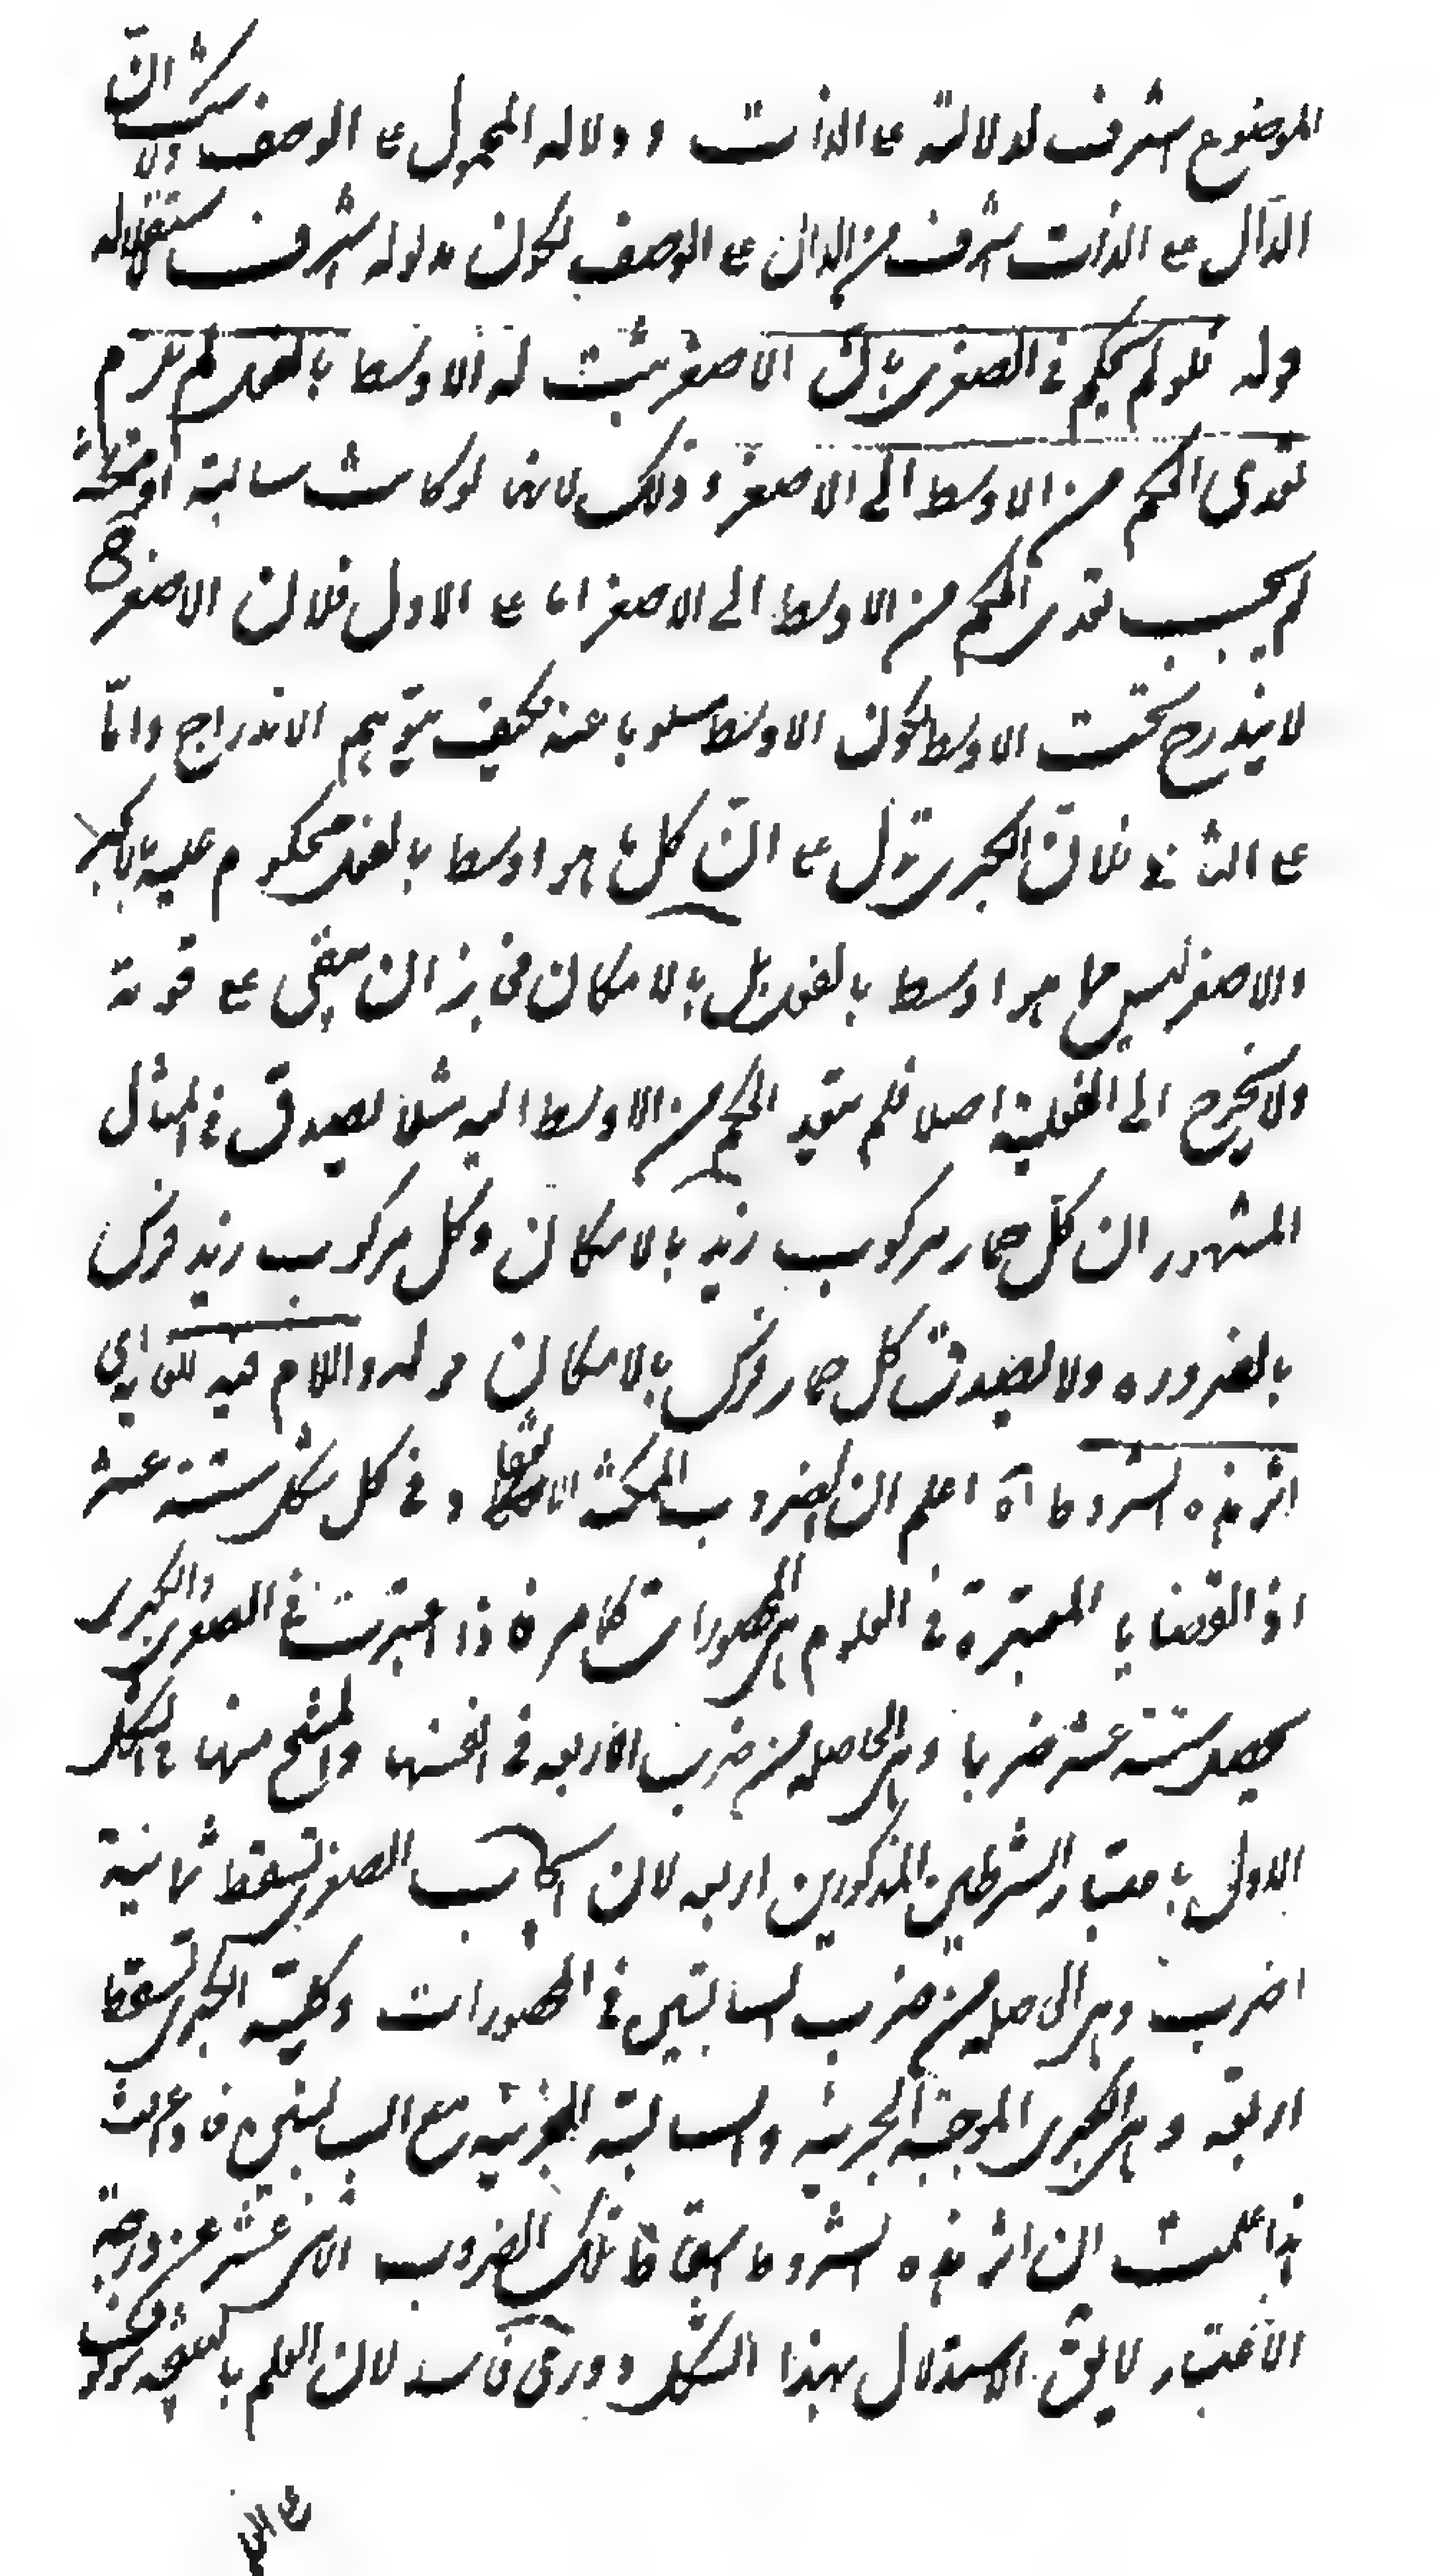 الموضوع اشرف لدلالته ع الذات و دلاله المحمول ع الوصف ولا شك ان
الدال ع الذات اشرف من الدال ع الوصف لكون مدلوله اشرف لاستقلاله
قوله فلو لم يحكم في الصغرى بان الاصغر يثبت له الاوسط بالفعل لم يلزم
تعدى الحكم من الاوسط الى الاصغر و ذلك لانها لو كانت سالبة او ممكنة
لم يجب تعدى الحكم من الاوسط الى الاصغر اما ع الاول فلان الاصغر ح
لا يندرج تحت الاوسط لكون الاوسط مسلوبا عنه فكيف يتوهم الاندراج واما
ع الثاني فلان الكبرى تدل ع ان كل ما هو اوسط بالفعل محكوم عليه بالاكبر
والاصغر ليس مما هو اوسط بالفعل بل بالامكان فجاز ان يبقى ع قوته
ولا يخرج الى الفعلية اصلا فلم يتعد الحكم من الاوسط اليه مثلا يصدق في المثال
المشهور ان كل حمار مركوب زيد بالامكان وكل مركوب زيد فرس
بالضروره ولا يصدق كل حمار فرس بالامكان قوله واللام فيه للغاية اى
اثر هذه الشروط آه اعلم ان الضروب الممكنة الانعقاد في كل شكل ستة عشر
اذ القضايا المعتبرة في العلوم هى المحصورات كما مر فاذا اعتبرت في الصغرى والكبرى
يحصل ستة عشر ضربا وهى الحاصله من ضرب الاربعه في انفسها والمنتج منها في الشكل
الاول باعتبار الشرطين المذكورين اربعه لان ايجاب الصغرى تسقط ثمانية
اضرب وهى الحاصله من ضرب السالبتين في المحصورات وكلية الكبرى تسقط
اربعة وهى الكبرى الموجبة الجزئية والسالبة الجزئية مع الموجبتين
هذا علمت ان اثر هذه الشروط اسقاط تلك الضروب الاثنى عشر عن درجة
الاعتبار لا يقال الاستدلال بهذا الشكل دورى فاسد لان العلم بالنتيجه موقوف
ع الك